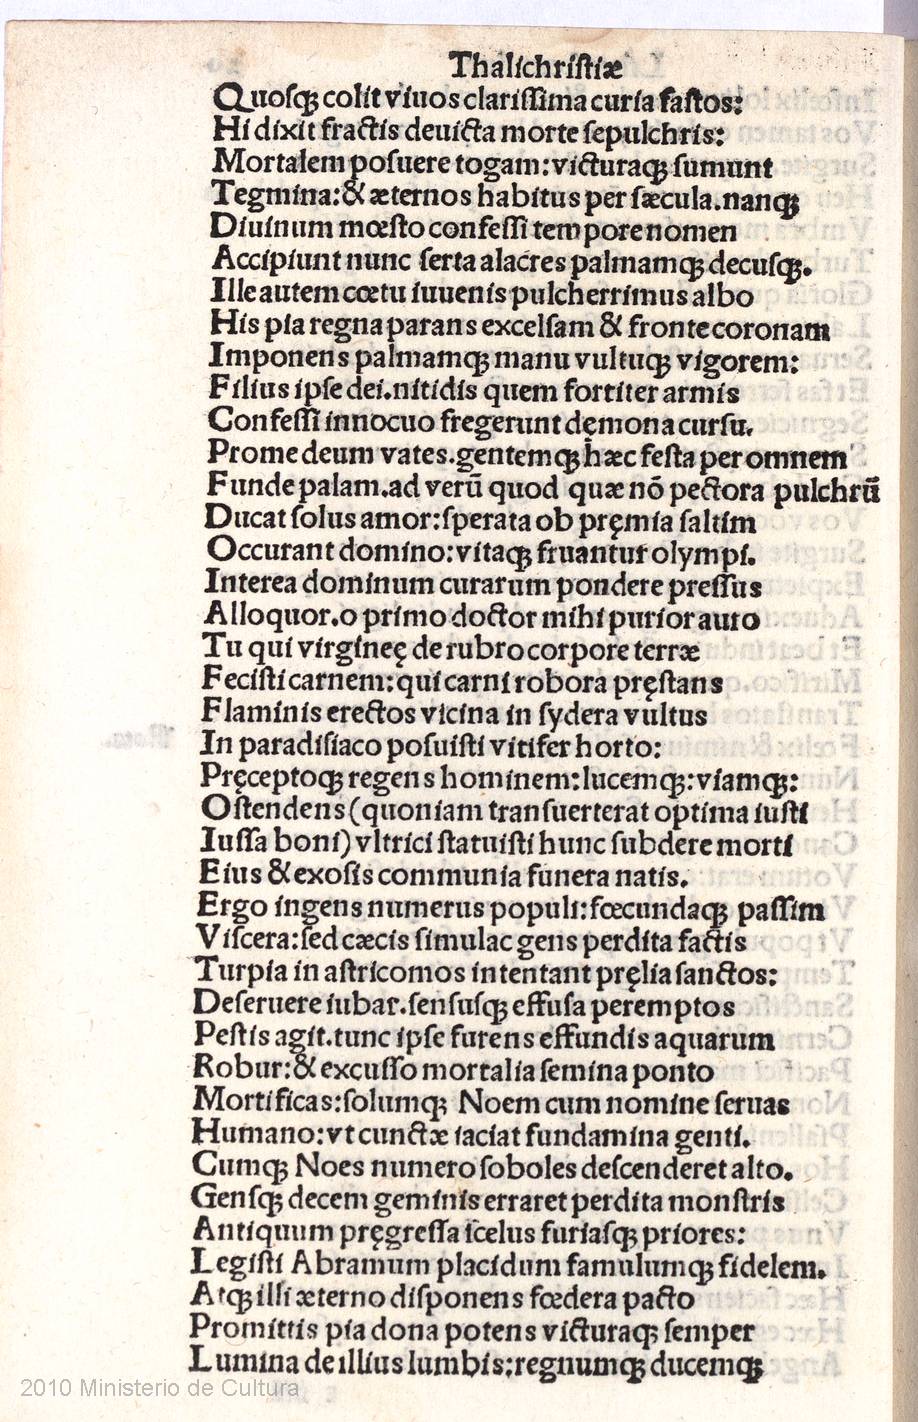 Thalichriſtiæ
Quoſqꝫ colit viuos clariſſima curia faſtos:
Hi dixit fractis deuicta morte ſepulchris:
Mortalem poſuere togam: victuraqꝫ ſumunt
Tegmina: & æternos habitus per ſæcula. nanqꝫ
Diuinum mœſto confeſſi tempore nomen
Accipiunt nunc ſerta alacres palmamqꝫ decuſqꝫ.
Ille autem cœtu iuuenis pulcherrimus albo
His pia regna parans excelſam & fronte coronam
Imponens palmamqꝫ manu vultuqꝫ vigorem:
Filius ipſe dei. nitidis quem fortiter armis
Confeſſi innocuo fregerunt dęmona curſu.
Prome deum vates. gentemqꝫ hæc feſta per omnem
Funde palam. ad verū quod quæ nō pectora pulchrū
Ducat ſolus amor: ſperata ob pręmia ſaltim
Occurant domino: vitaqꝫ fruantur olympi.
Interea dominum curarum pondere preſſus
Alloquor. o primo doctor mihi purior auro
Tu qui virgineę de rubro corpore terræ
Feciſti carnem: qui carni robora pręſtans
Flaminis erectos vicina in ſydera vultus
In paradiſiaco poſuiſti vitifer horto:
Pręceptoqꝫ regens hominem: lucemqꝫ: viamqꝫ:
Oſtendens (quoniam tranſuerterat optima iuſti
Iuſſa boni) vltrici ſtatuiſti hunc ſubdere morti
Eius & exoſis communia funera natis.
Ergo ingens numerus populi: fœcundaqꝫ paſſim
Viſcera: ſed cæcis ſimulac gens perdita factis
Turpia in aſtricomos intentant pręlia ſanctos:
Deſeruere iubar. ſenſuſqꝫ effuſa peremptos
Peſtis agit. tunc ipſe furens effundis aquarum
Robur: & excuſſo mortalia ſemina ponto
Mortificas: ſolumqꝫ Noem cum nomine ſeruas
Humano: vt cunctæ iaciat fundamina genti.
Cumqꝫ Noes numero ſoboles deſcenderet alto.
Genſqꝫ decem geminis erraret perdita monſtris
Antiquum pręgreſſa ſcelus furiaſqꝫ priores:
Legiſti Abramum placidum famulumqꝫ fidelem.
Atqꝫ illi æterno diſponens fœdera pacto
Promittis pia dona potens victuraqꝫ ſemper
Lumina de illius lumbis: regnumqꝫ ducemqꝫ
2010 Ministerio de Cultura